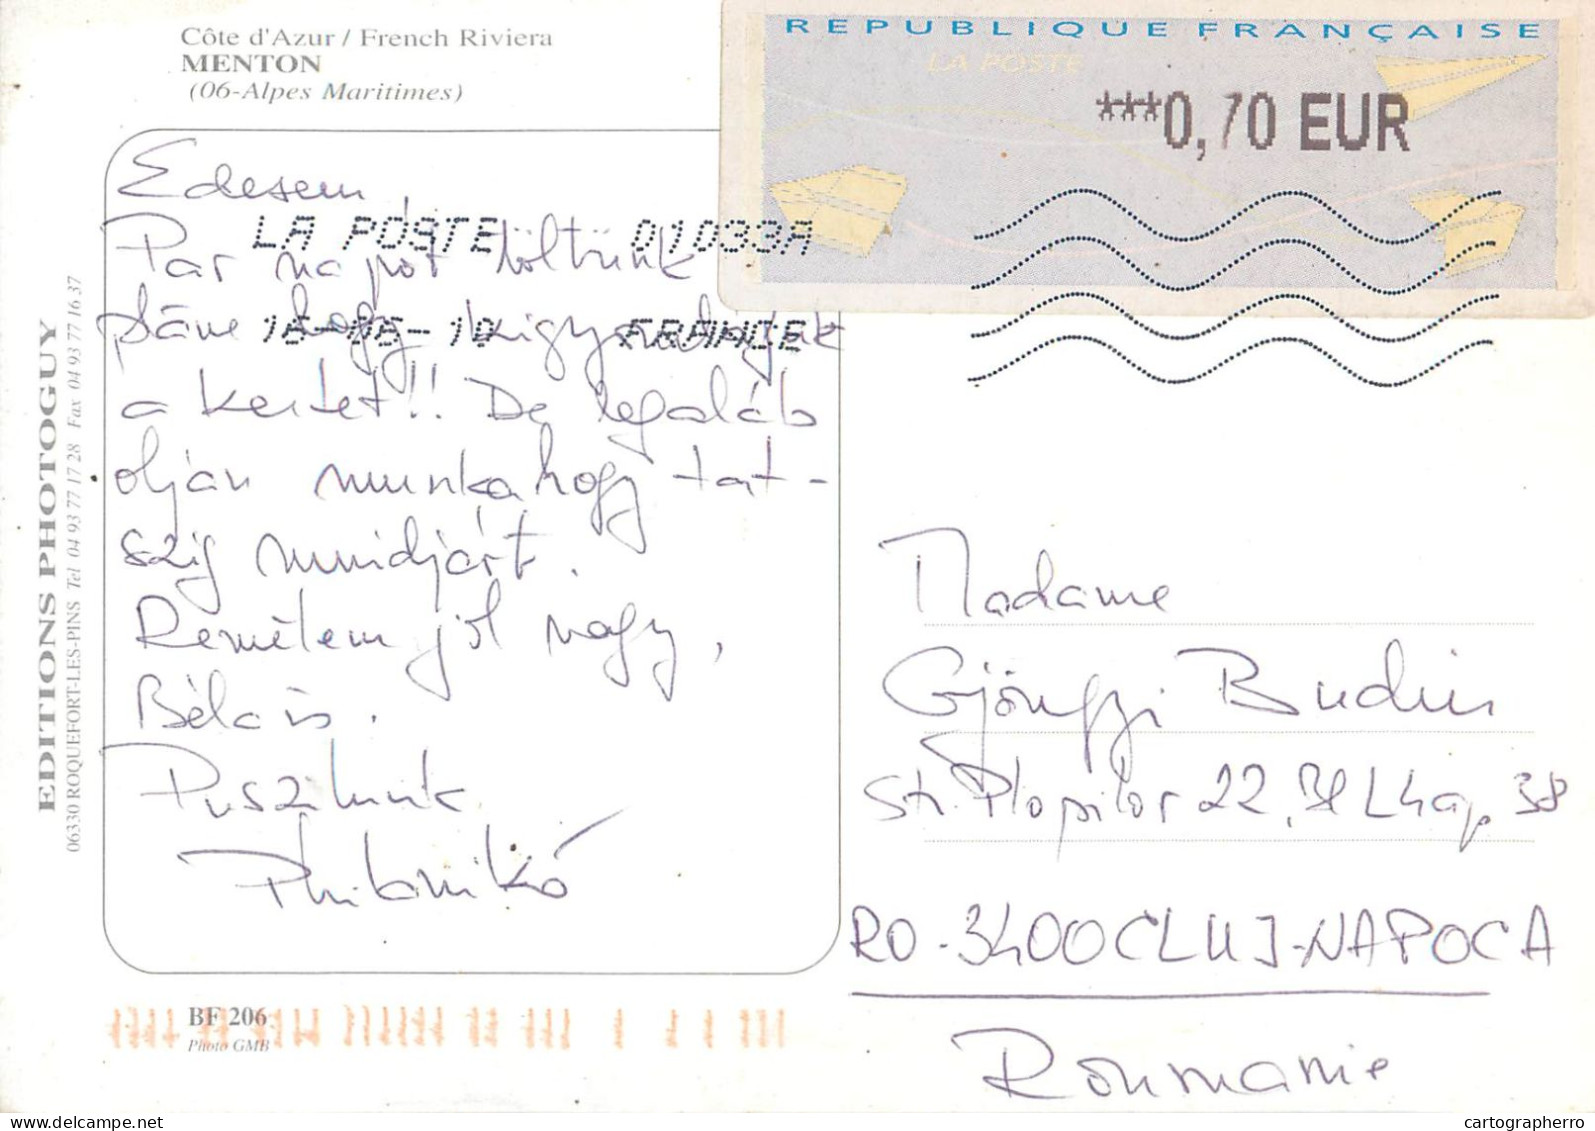 Côte d'Azur / French Riviera
MENTON
(06-Alpes Maritimes)
REPUBLIQUE FRANÇAISE
LA POSTE
***0,70 EUR
LA POSTE 01033A
FRANCE
Edesem
Par napot töltünk
pláne hogy
a kertet!! De legaláb
olján munka hogy tat-
szig mindjárt.
Remélem jól vagy,
Béla is.
Puszilunk
EDITIONS PHOTOGUY
06330 ROQUEFORT-LES-PINS Tel 04 93 77 17 28 Fax 04 93 77 16 37
Madame
Gjöngyi Budiu
Str. Plopilor 22, Bl L4 ap. 38
RO-3400 CLUJ-NAPOCA
Roumanie
BF 206
Photo GMB
cartographerro